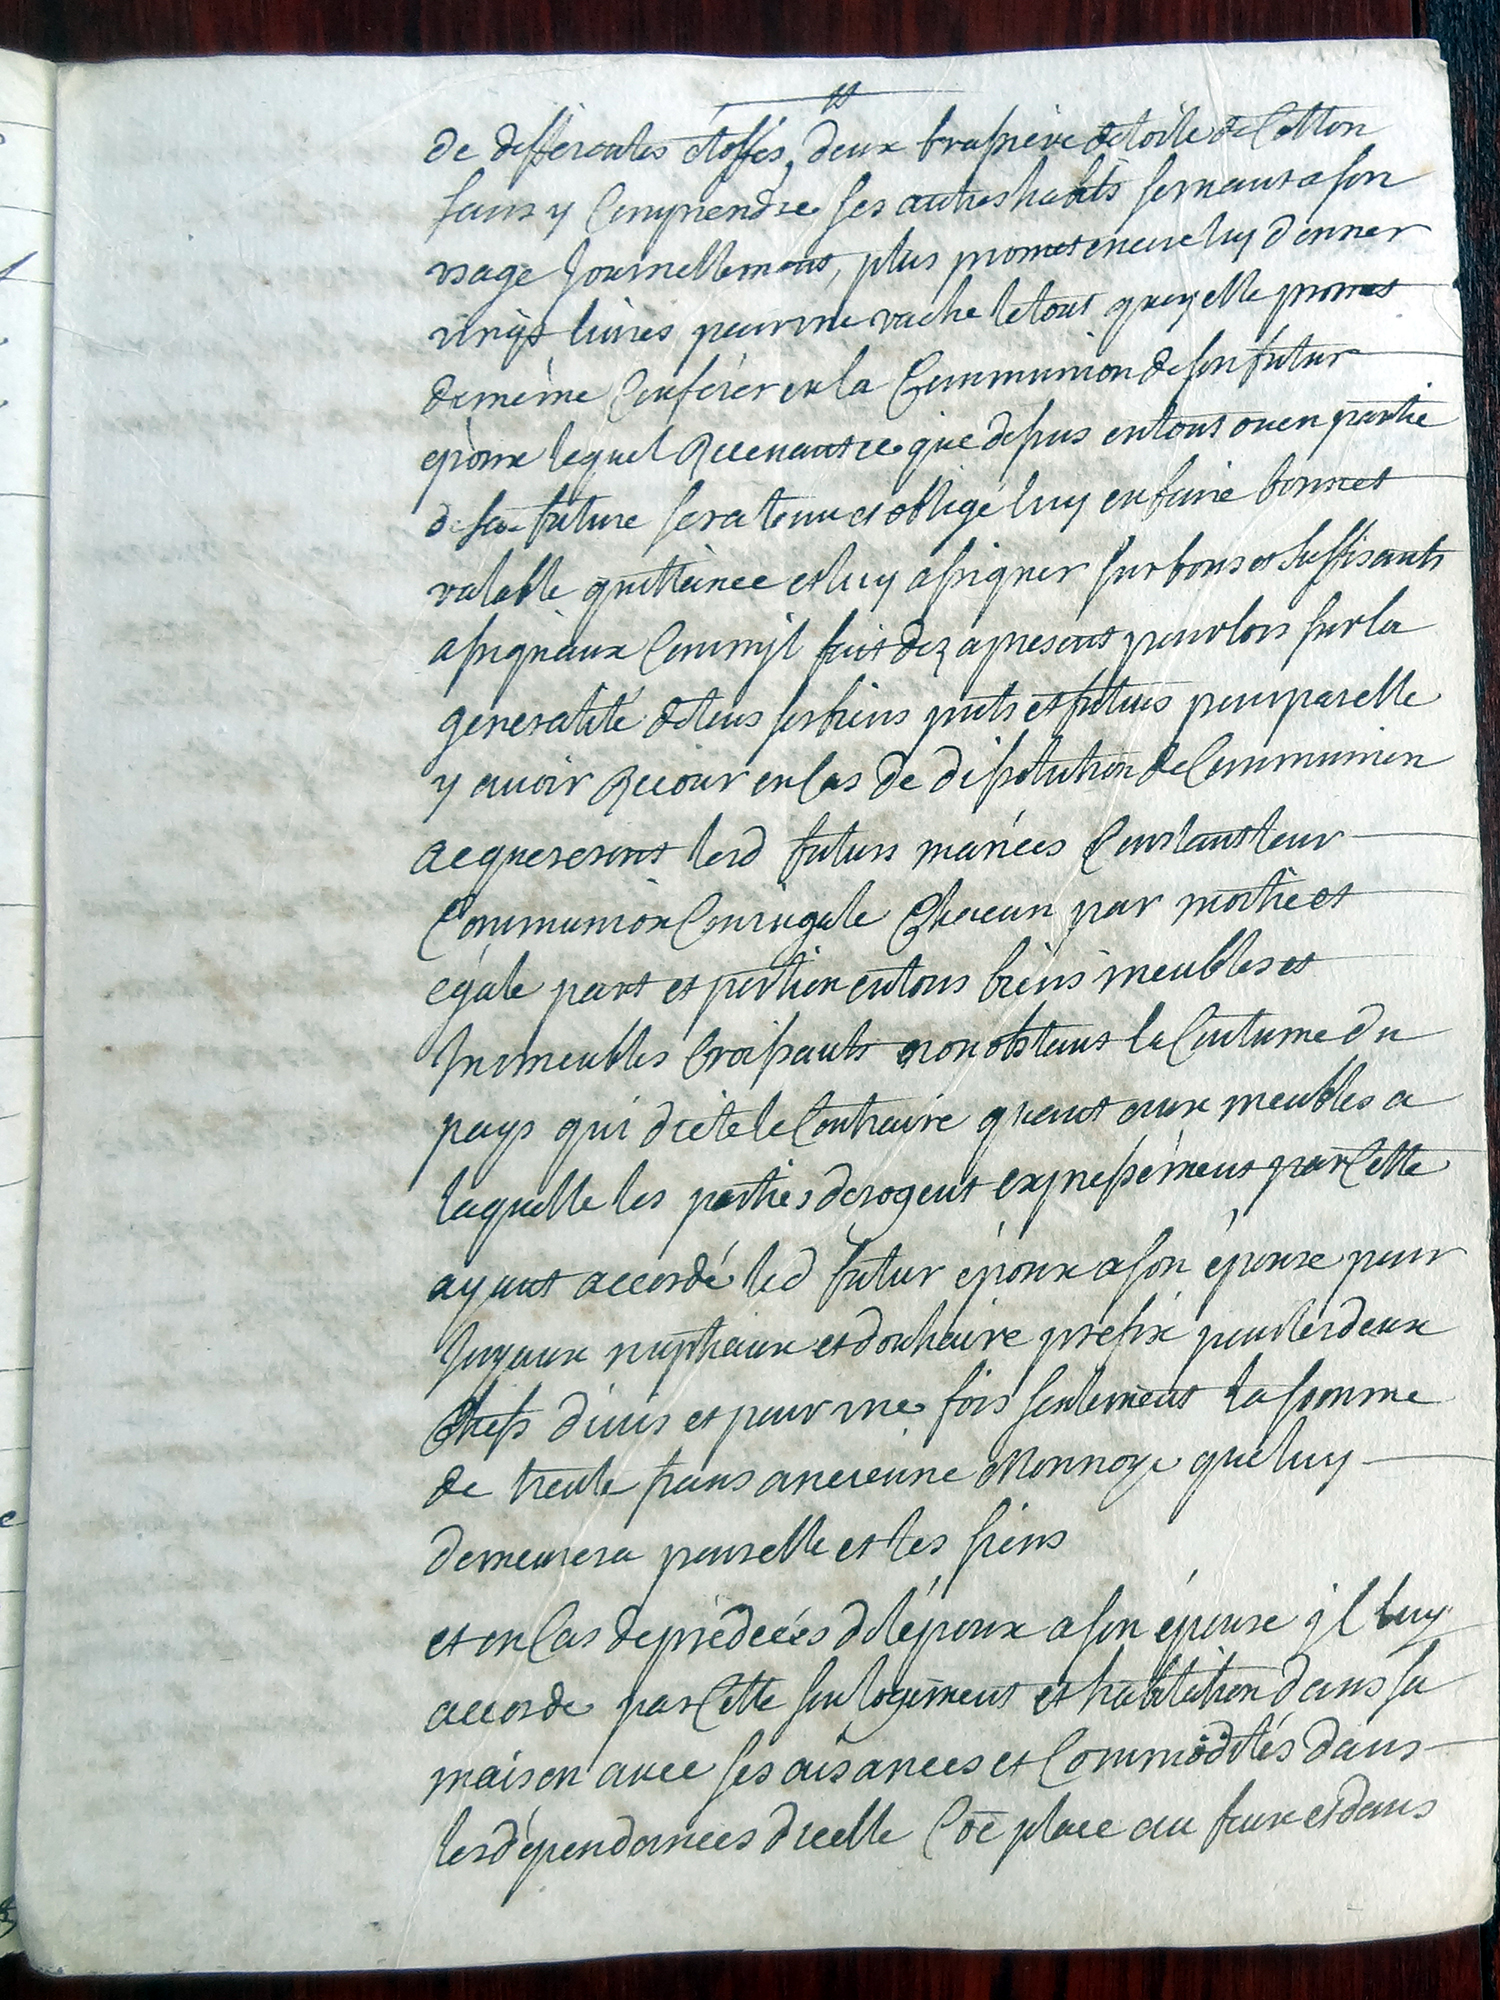 de differentes étoffes, deux brassiere de toile de Cotton
sans y Comprendre ses autres habits servant a son
usage Journellement, plus promet encore luy donner
vingt livres pour une vache le tout quoy elle promet
de même Conférer en la Communion de son futur
epoux lequel Recevant ce que dessus en tout ou en partie
de sa future sera tenu et obligé luy en faire bonne et
valable quittance et luy assigner sur bons et suffisants
assignaux Comm'jl fait dez a present pour lors sur la
generalité de tous ses biens pnts et futurs pour par elle
y avoir Recour en Cas de dissolution de Communion
acquereront lesd futurs mariées Constant leur
Communion Conjugale Chacun par moitié et
égale part et portion en tous biens meubles et
Immeubles Croissants nonobstant la Coutume du
pays qui dicte le Contraire quant aux meubles a
laquelle les parties derogent expressément par Cette
ayant accordé led futur époux a son épouse pour
Joyaux nuptiaux et douhaire prefix pour les deux
Chefs divis et pour une fois seulement la somme
de trente frans ancienne Monnoye que luy
demeurera pour elle et les siens
et en Cas de prédécés de l'époux a son épouse jl luy
accorde par Cette son logement et habitation dans sa
maison avec ses aisances et Commodités dans
les dépendances d'icelle Coē place au feux et dans